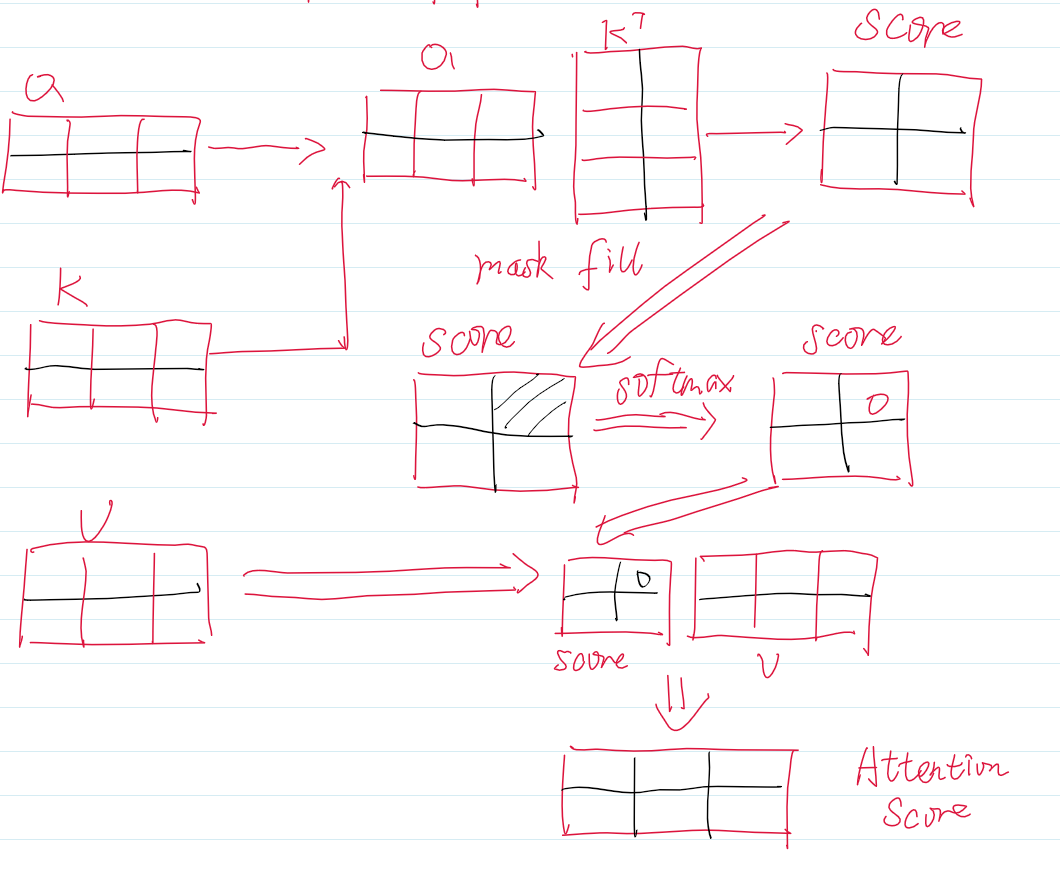 Q
Q
K^T
Score
K
mask fill
score
softmax
score
0
V
0
score
V
Attention
Score